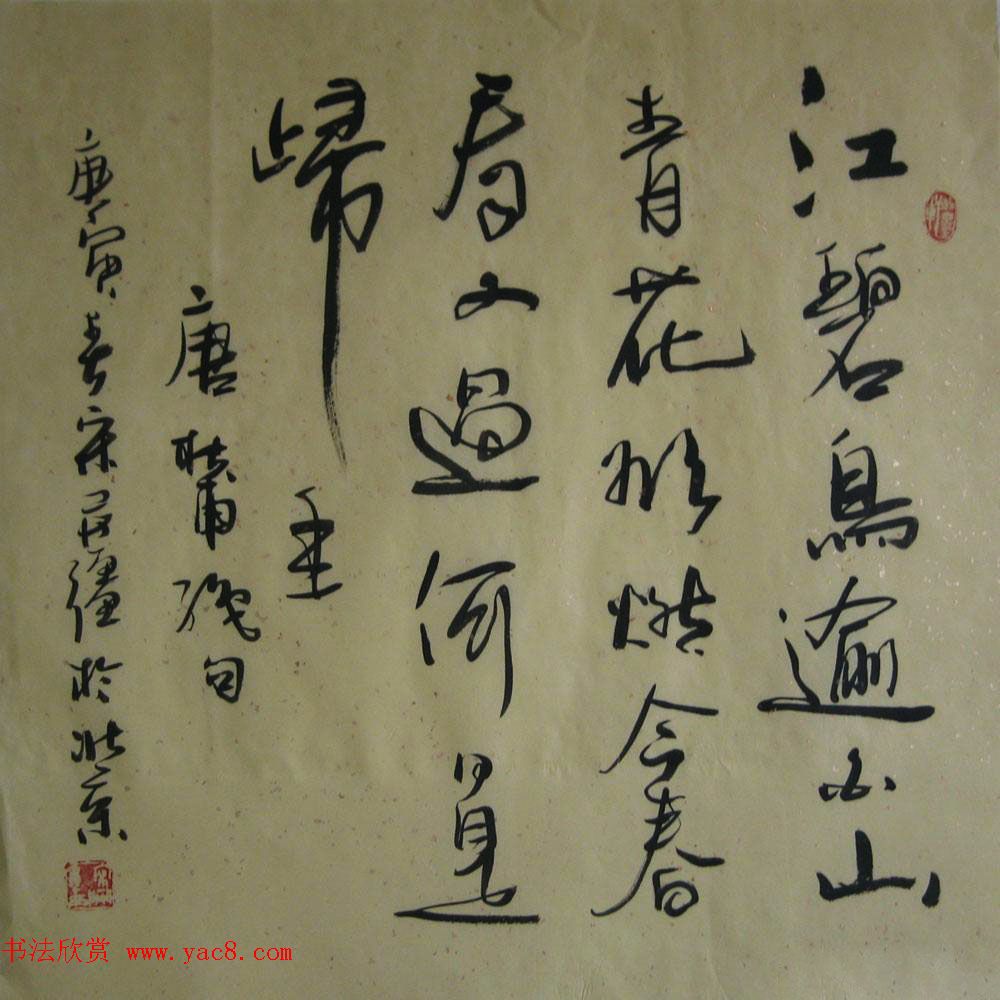 江碧鳥逾白山
青花欲燃今春
看又過何日是
歸年
唐杜甫絶句
庚寅春宋疆於北京
书法欣赏 www.yac8.com